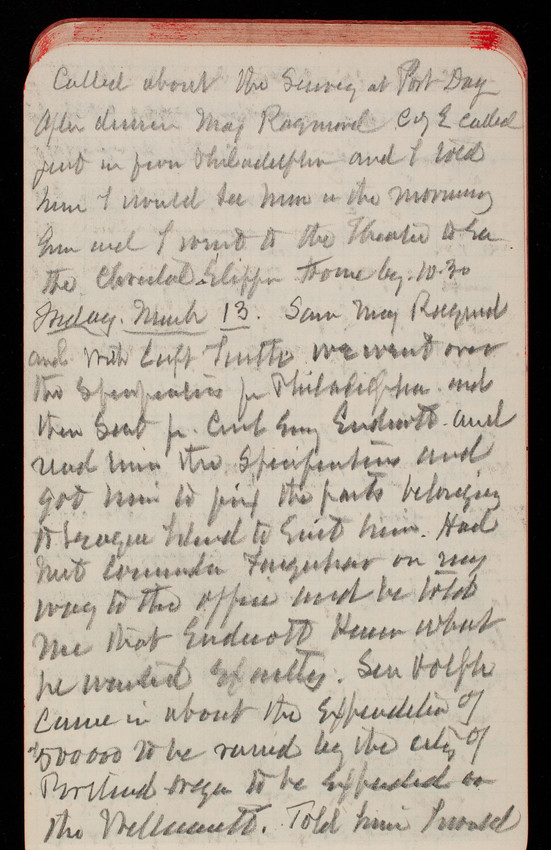 Called about the Survey at Port Day
After dinner Maj Raymond C of E called
just in from Philadelphia and I told
him I would see him in the morning
and I went to the Theatre to see
the home by 10.30
Friday. March 13. Saw Maj Raymond
and with Capt Turtle we went over
the Specifications for Philadelphia and
then sent for Civil Eng Endicott and
read him the Specifications and
got him to fix the parts belonging
to League Island to suit him. Had
met Commander Farquhar on my
way to the office and he told
me that Endicott knew what
he wanted exactly. Sen Dolph
came in about the Expenditure of
$500000 to be raised by the city of
Portland Oregon to be Expended on
the Willamette. Told him I would